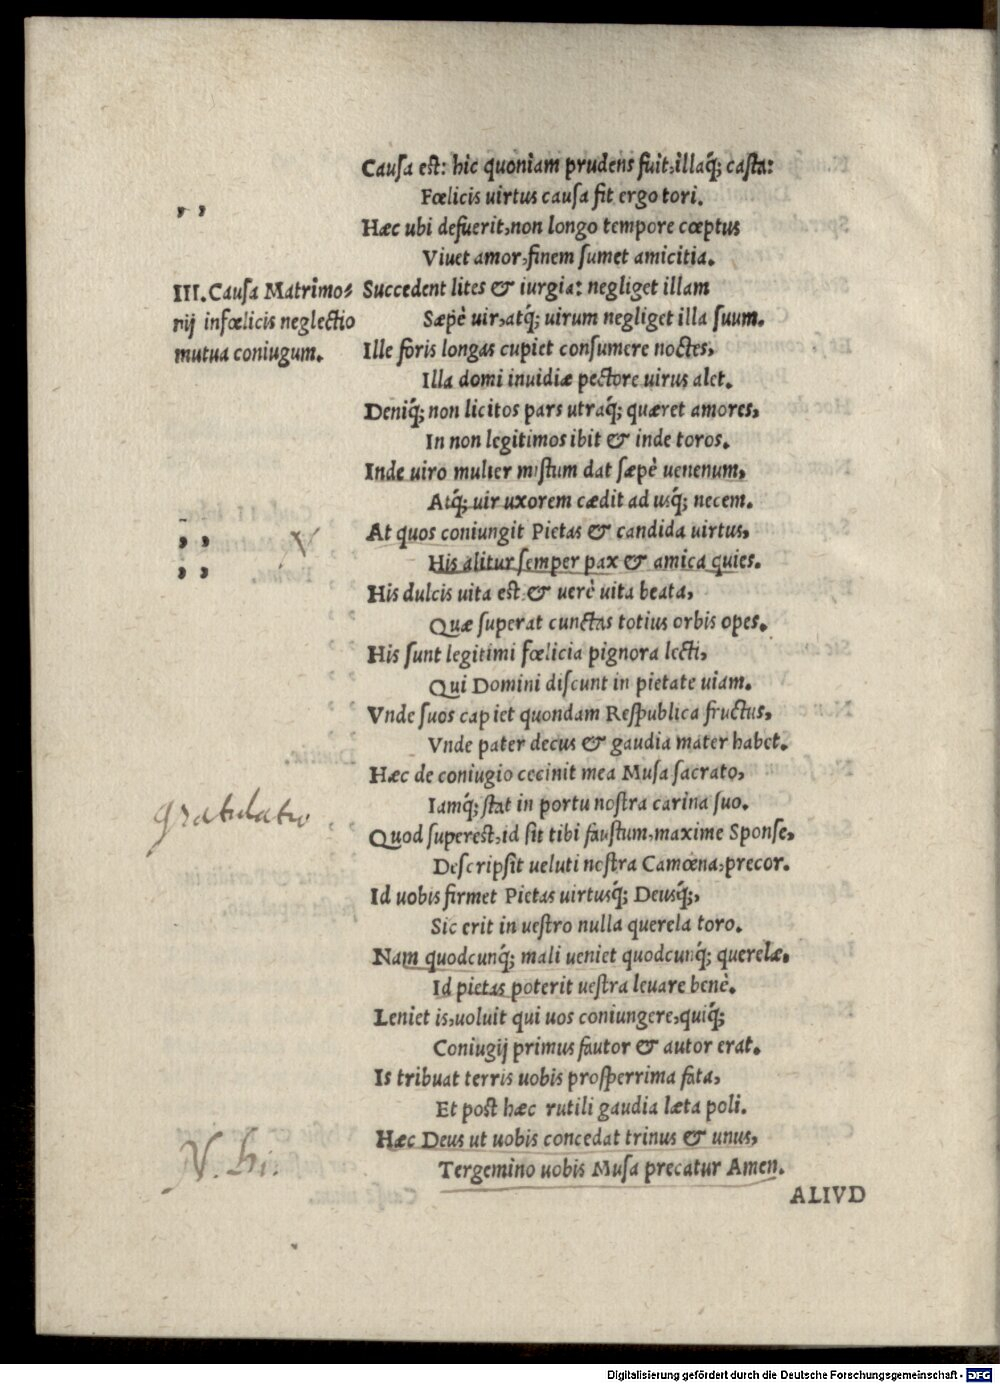 Cauſa eſt: hic quoniam prudens fuit, illaq́; caſta:
Fœlicis uirtus cauſa fit ergo tori.
, ,
Hæc ubi defuerit, non longo tempore cœptus
Viuet amor, finem ſumet amicitia.
III. Cauſa Matrimo⸗
nij infœlicis neglectio
mutua coniugum.
Succedent lites & iurgia: negliget illam
Sæpè uir, atq́; uirum negliget illa ſuum.
Ille foris longas cupiet conſumere noctes,
Illa domi inuidiæ pectore uirus alet.
Deniq́; non licitos pars utraq́; quæret amores,
In non legitimos ibit & inde toros.
Inde uiro mulier miſtum dat ſæpè uenenum,
Atq́; uir uxorem cædit ad uſq́; necem.
, , V
, ,
At quos coniungit Pietas & candida uirtus,
His alitur ſemper pax & amica quies.
His dulcis uita eſt & uerè uita beata,
Quæ ſuperat cunctas totius orbis opes.
His ſunt legitimi fœlicia pignora lecti,
Qui Domini diſcunt in pietate uiam.
Vnde ſuos capiet quondam Reſpublica fructus,
Vnde pater decus & gaudia mater habet.
Hæc de coniugio cecinit mea Muſa ſacrato,
Iamq́; ſtat in portu noſtra carina ſuo.
gratulatio
Quod ſupereſt, id ſit tibi fauſtum, maxime Sponſe,
Deſcripſit ueluti noſtra Camœna, precor.
Id uobis firmet Pietas uirtusq́; Deusq́;,
Sic erit in ueſtro nulla querela toro.
Nam quodcunq́; mali ueniet quodcunq́; querelæ,
Id pietas poterit ueſtra leuare benè.
Leniet is, uoluit qui uos coniungere, quiq́;
Coniugij primus fautor & autor erat.
Is tribuat terris uobis proſperrima fata,
Et poſt hæc rutili gaudia læta poli.
Hæc Deus ut uobis concedat trinus & unus,
Tergemino uobis Muſa precatur Amen.
ALIVD
Digitalisierung gefördert durch die Deutsche Forschungsgemeinschaft - DFG